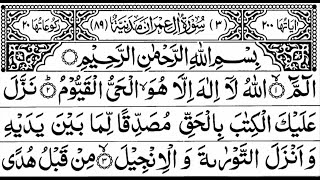 اٰيَاتُهَا ٢٠٠ (٣) سُوْرَةُ اٰلِ عِمْرٰنَ مَدَنِيَّةٌ (٨٩) رُكُوْعَاتُهَا ٢٠
بِسْمِ اللّٰهِ الرَّحْمٰنِ الرَّحِيْمِ
الٓمّٓ ۙ﴿١﴾ اللّٰهُ لَاۤ اِلٰهَ اِلَّا هُوَ ۙ الْحَيُّ الْقَيُّوْمُ ؕ﴿٢﴾ نَزَّلَ
عَلَيْكَ الْكِتٰبَ بِالْحَقِّ مُصَدِّقًا لِّمَا بَيْنَ يَدَيْهِ
وَ اَنْزَلَ التَّوْرٰىةَ وَ الْاِنْجِيْلَ ۙ﴿٣﴾ مِنْ قَبْلُ هُدًى